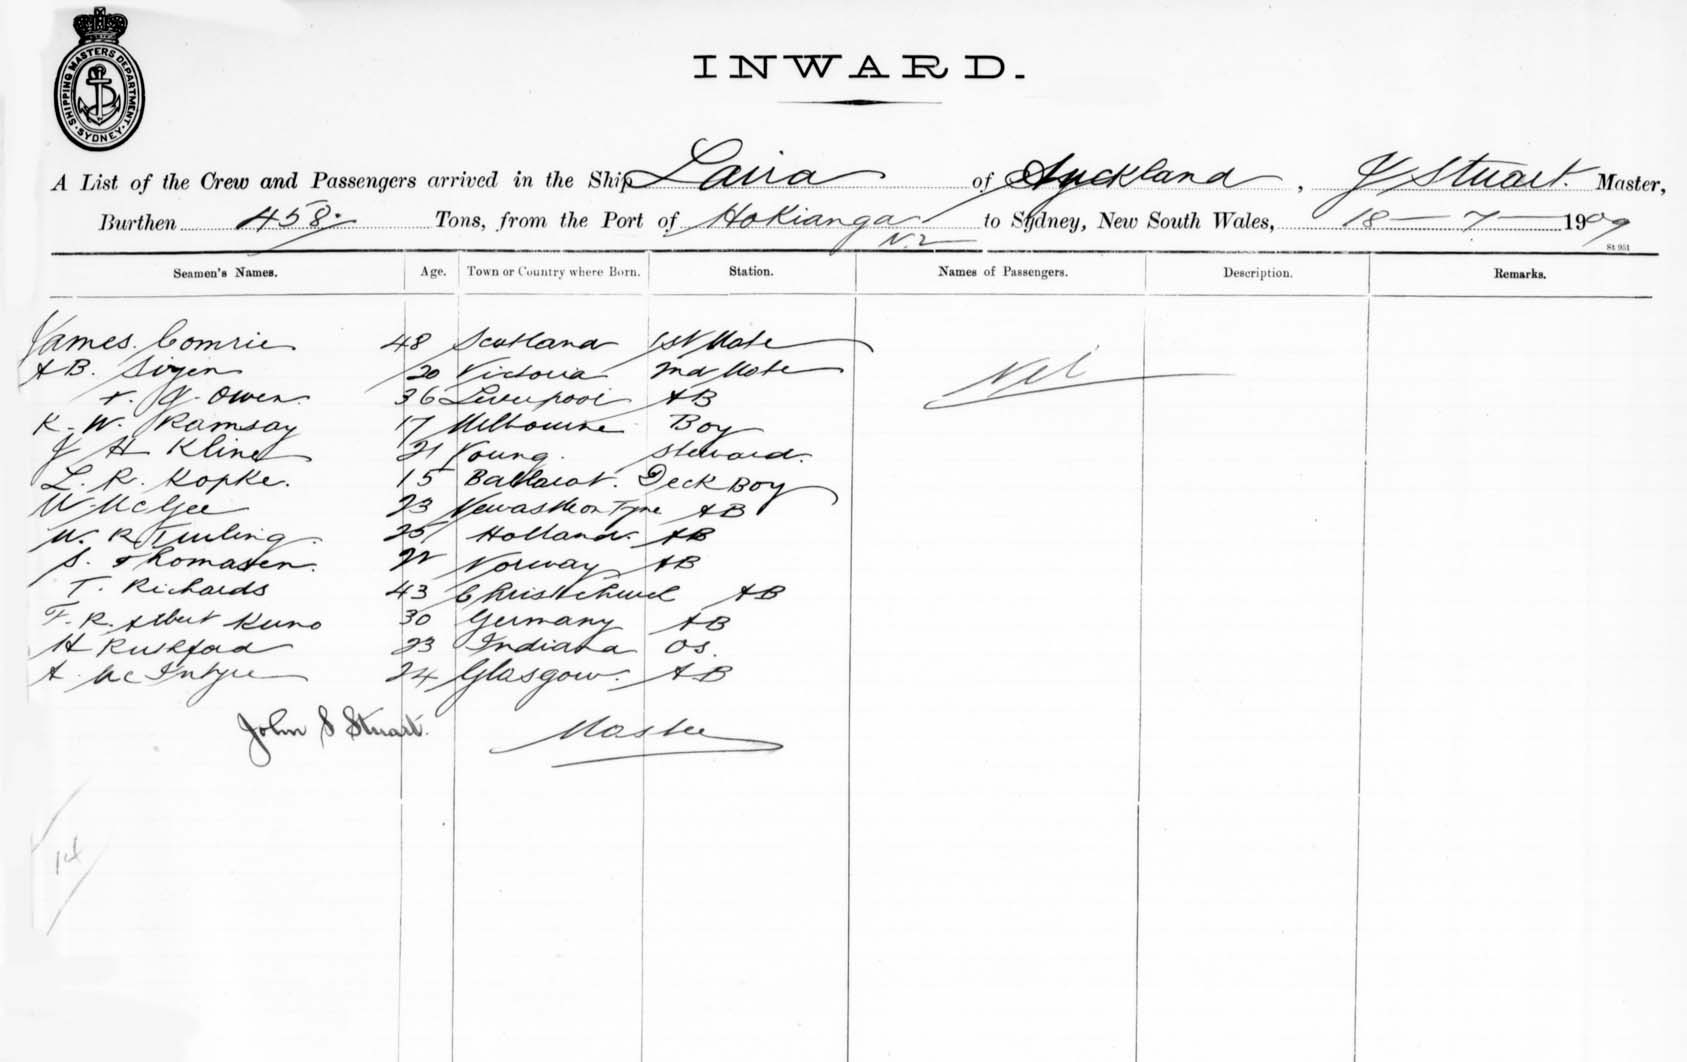 SHIPPING MASTERS DEPARTMENT · SYDNEY ·
INWARD.
A List of the Crew and Passengers arrived in the Ship Laira of Auckland, J Stuart. Master,
Burthen 458 Tons, from the Port of Hokianga N.Z to Sydney, New South Wales, 18 - 7 - 1909
St 951
Seamen's Names. Age. Town or Country where Born. Station. Names of Passengers. Description. Remarks.
James. Comrie 48 Scotland 1st Mate
A B. 20 Victoria 2nd Mate Nil
J. Owen. 36 Liverpool AB
R. W. Ramsay 17 Melbourne Boy
J H Kline 21 Young. Steward.
L. R. Kopke. 15 Ballarat. Deck Boy
W. McGee 23 Newcastle on Tyne AB
W. R. 25 Holland. AB
S. Thomasen. Norway AB
T. Richards 43 Christchurch AB
F. R. Albert Kuno 30 Germany AB
H 23 Indiana OS.
A. McIntyre 24 Glasgow. AB
John S Stuart. Master
14